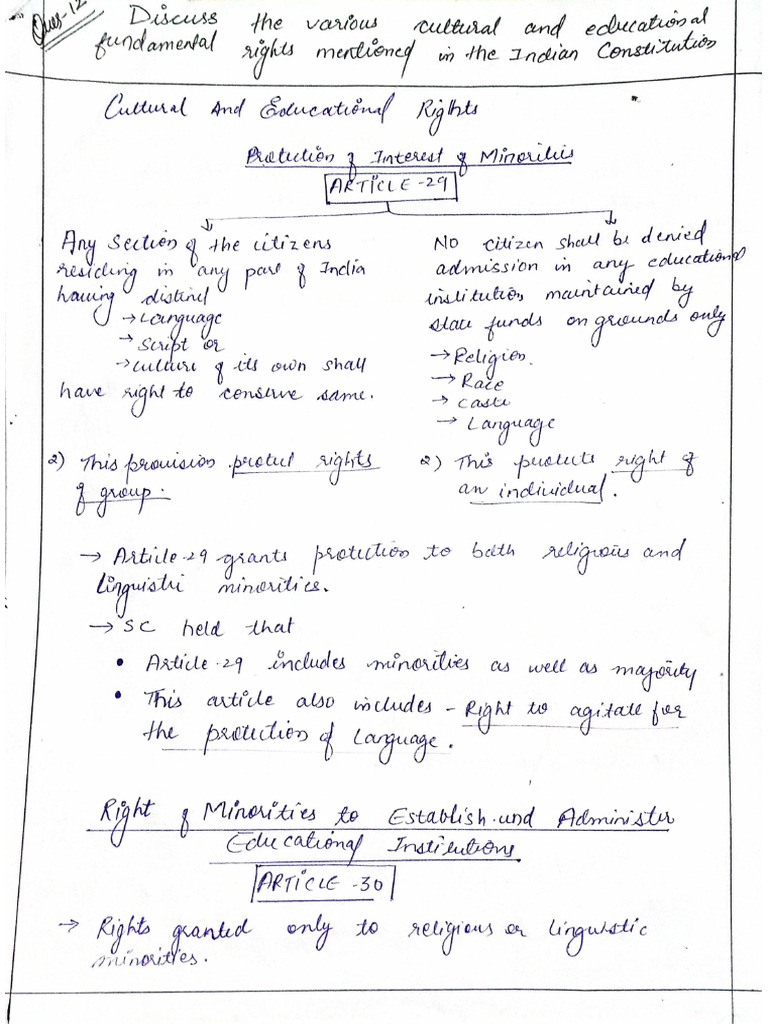 Ques-12
Discuss the various cultural and educational
fundamental rights mentioned in the Indian Constitution
Cultural And Educational Rights
Protection of Interest of Minorities
ARTICLE-29
Any Section of the citizens
residing in any part of India
having distinct
→ Language
→ Script or
→ culture of its own shall
have right to conserve same.
No citizen shall be denied
admission in any educational
institution maintained by
state funds on grounds only
→ Religion.
→ Race
→ caste
→ Language
2) This provision protect rights
of group.
2) This protects right of
an individual.
→ Article-29 grants protection to both religious and
linguistic minorities.
→ SC held that
• Article-29 includes minorities as well as majority
• This article also includes - Right to agitate for
the protection of language.
Right of Minorities to Establish and Administer
Educational Institutions
ARTICLE-30
→ Rights granted only to religious or linguistic
minorities.